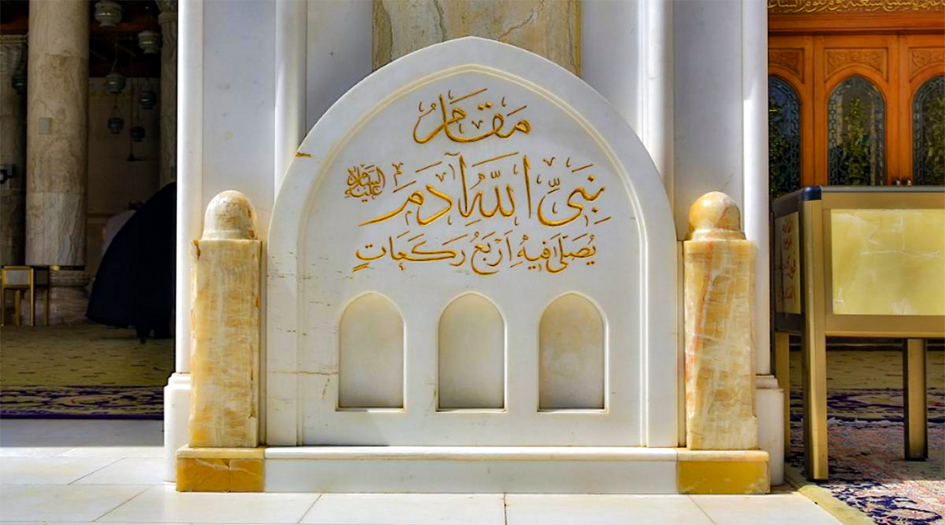 مَقَامُ
نَبِيِّ اللهِ آدَمَ عليه السلام
يُصَلَّى فِيهِ اَرْبَعُ رَكَعَاتٍ